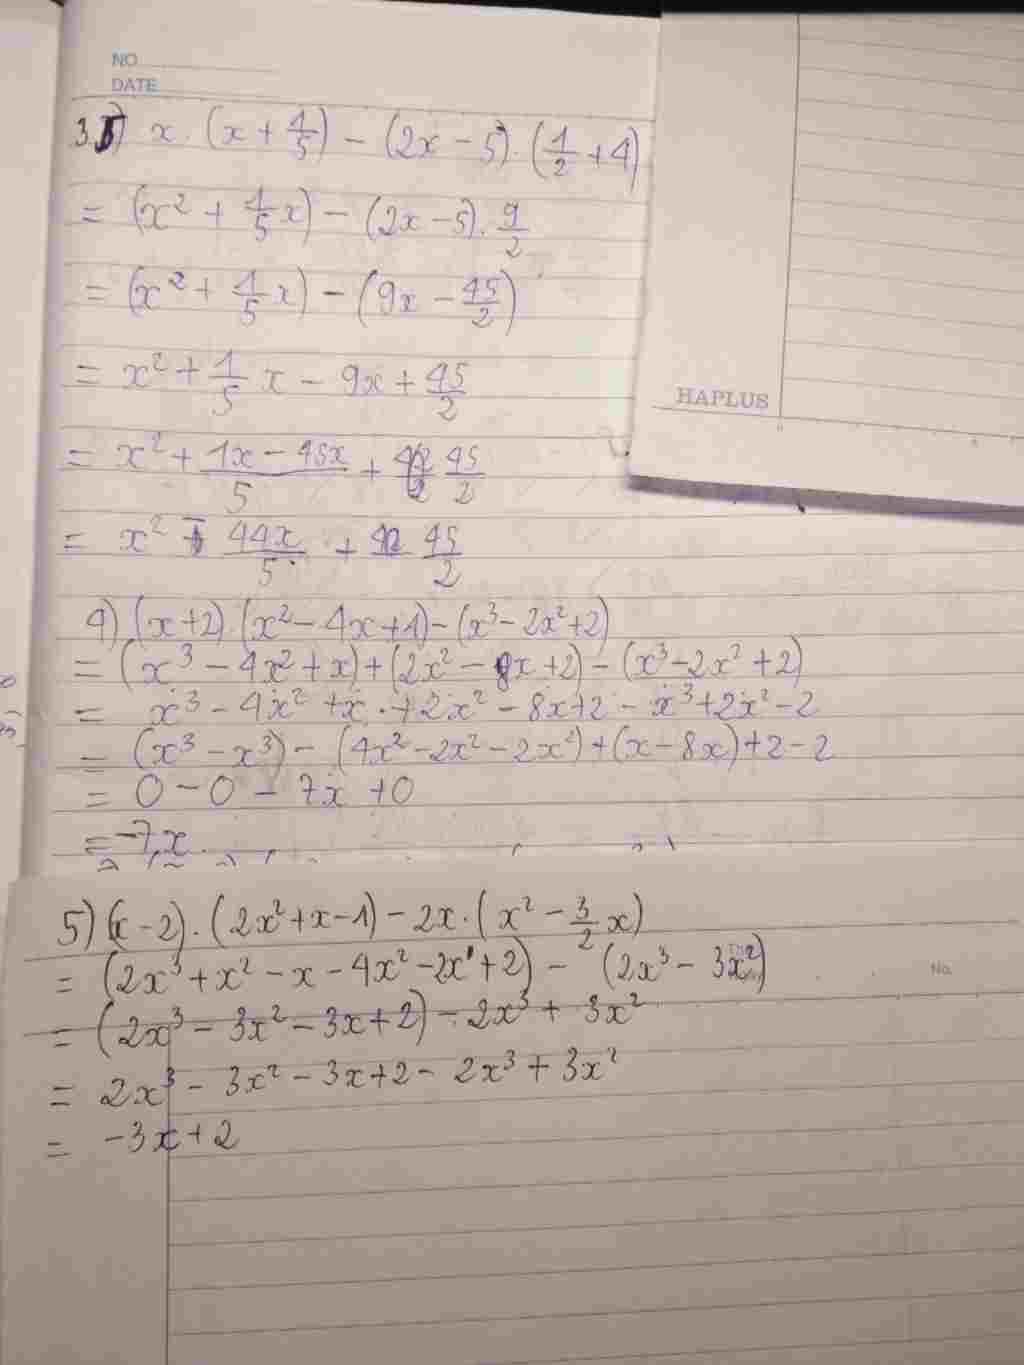 NO
DATE
3.5) x . (x + 1/5) - (2x - 5) . (1/2 + 4)
= (x² + 1/5 x) - (2x - 5) . 9/2
= (x² + 1/5 x) - (9x - 45/2)
= x² + 1/5 x - 9x + 45/2
HAPLUS
= x² + (1x - 45x)/5 + 45/2
= x² - 44x/5 + 45/2
4) (x+2) . (x² - 4x + 1) - (x³ - 2x² + 2)
= (x³ - 4x² + x) + (2x² - 8x + 2) - (x³ - 2x² + 2)
= x³ - 4x² + x + 2x² - 8x + 2 - x³ + 2x² - 2
= (x³ - x³) - (4x² - 2x² - 2x²) + (x - 8x) + 2 - 2
= 0 - 0 - 7x + 0
= -7x.
5) (x - 2) . (2x² + x - 1) - 2x . (x² - 3/2 x)
= (2x³ + x² - x - 4x² - 2x + 2) - (2x³ - 3x²)
No.
= (2x³ - 3x² - 3x + 2) - 2x³ + 3x²
= 2x³ - 3x² - 3x + 2 - 2x³ + 3x²
= -3x + 2